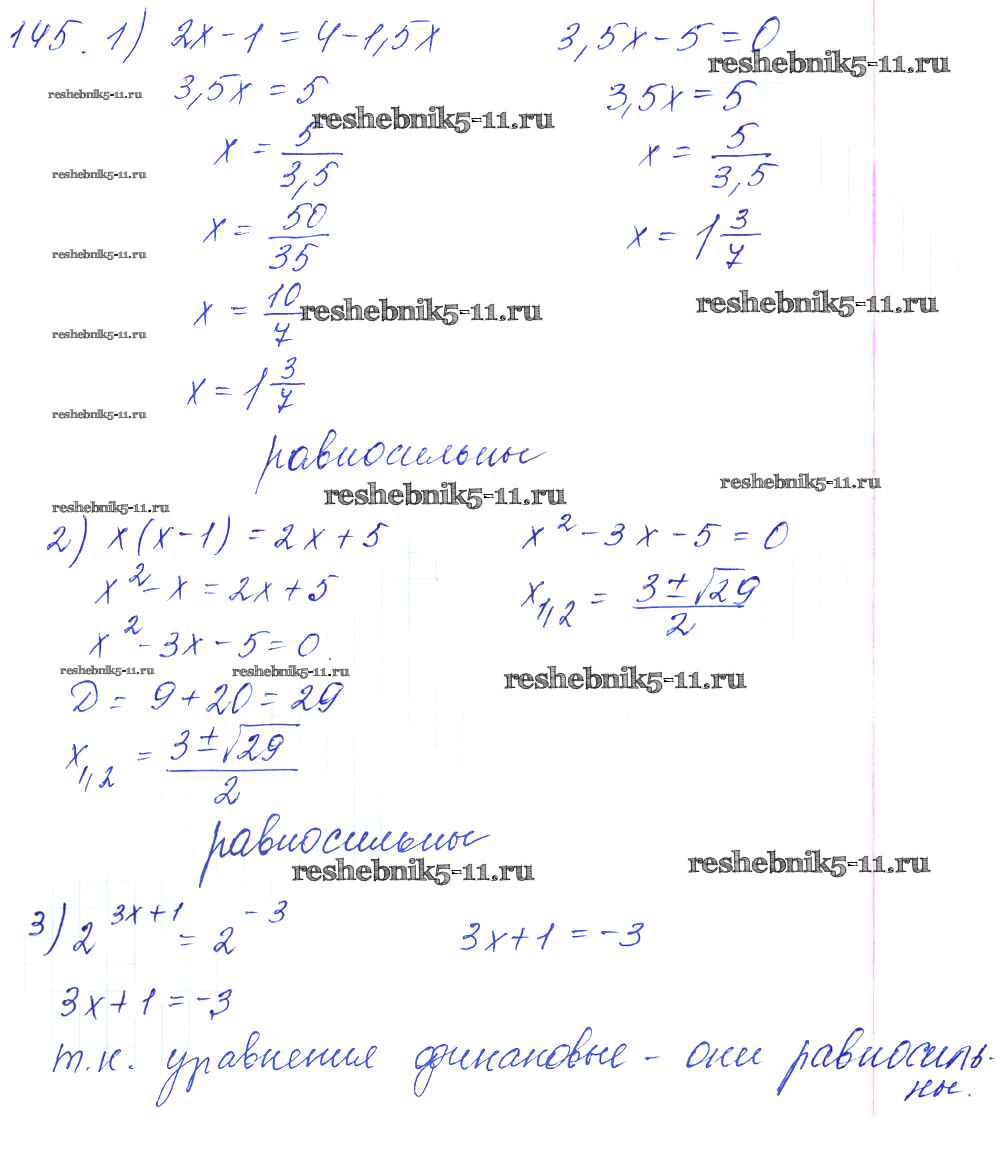 145. 1) 2x - 1 = 4 - 1,5x    3,5x - 5 = 0
reshebnik5-11.ru
reshebnik5-11.ru 3,5x = 5    3,5x = 5
reshebnik5-11.ru
x = 5/3,5    x = 5/3,5
reshebnik5-11.ru
x = 50/35    x = 1 3/7
reshebnik5-11.ru
x = 10/7 reshebnik5-11.ru    reshebnik5-11.ru
reshebnik5-11.ru
x = 1 3/7
reshebnik5-11.ru
равносильны
reshebnik5-11.ru    reshebnik5-11.ru
reshebnik5-11.ru
2) x(x - 1) = 2x + 5    x² - 3x - 5 = 0
x² - x = 2x + 5    x₁,₂ = (3 ± √29)/2
x² - 3x - 5 = 0.
reshebnik5-11.ru reshebnik5-11.ru    reshebnik5-11.ru
D = 9 + 20 = 29
x₁,₂ = (3 ± √29)/2
равносильны
reshebnik5-11.ru    reshebnik5-11.ru
3) 2^(3x+1) = 2^(-3)    3x + 1 = -3
3x + 1 = -3
т.к. уравнения одинаковые - они равносиль-
ны.